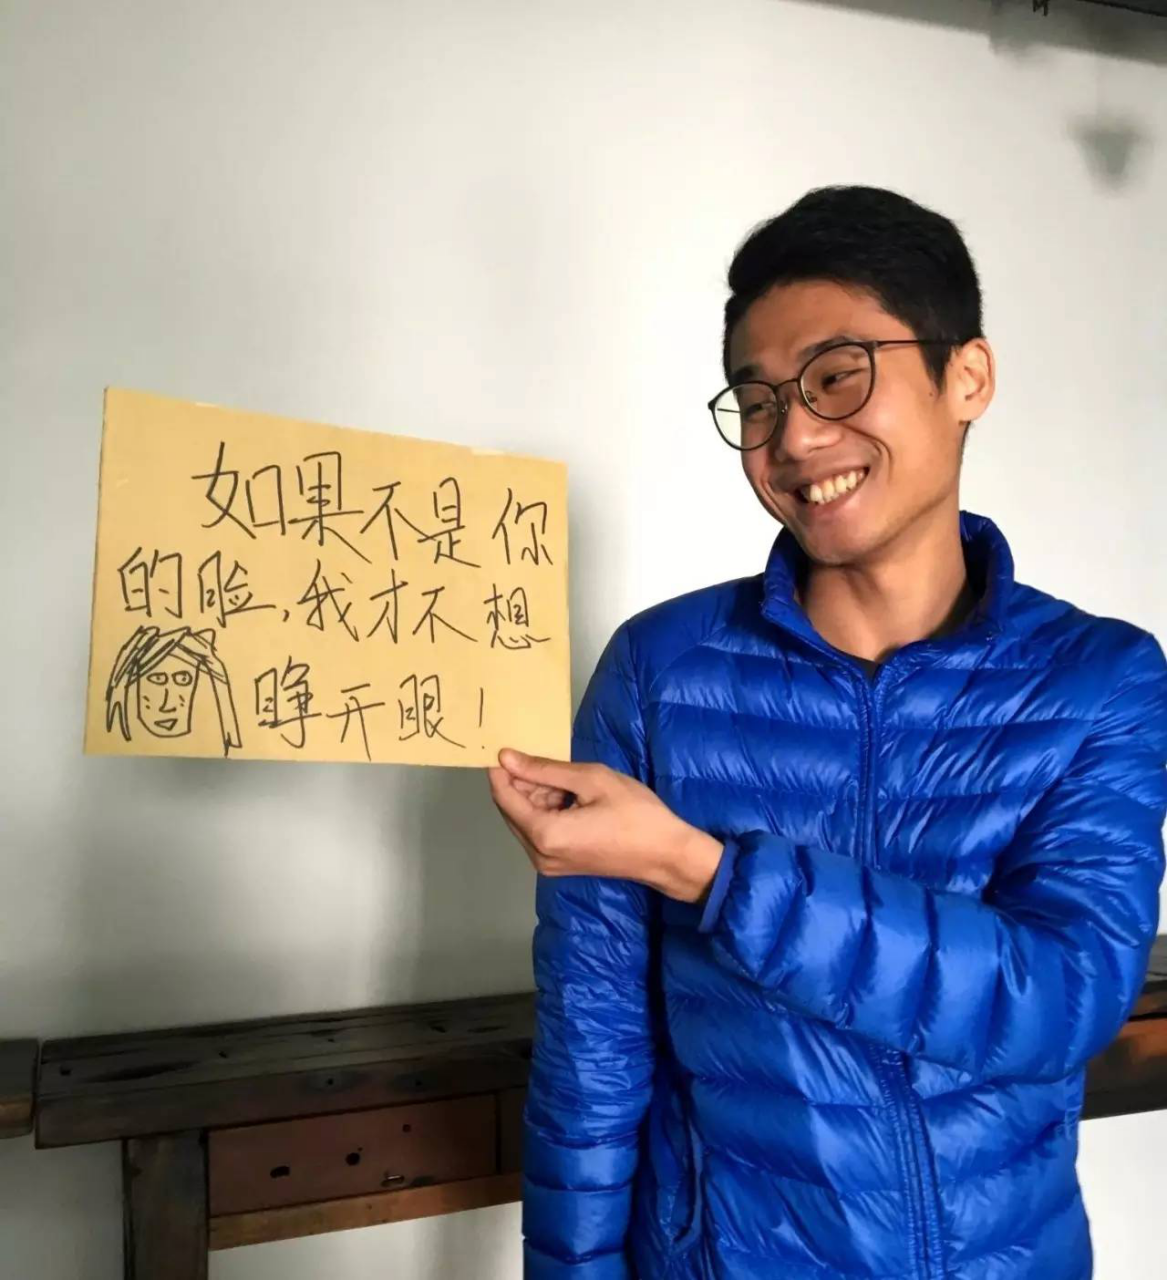 如果不是你
的脸,我才不想
睁开眼!